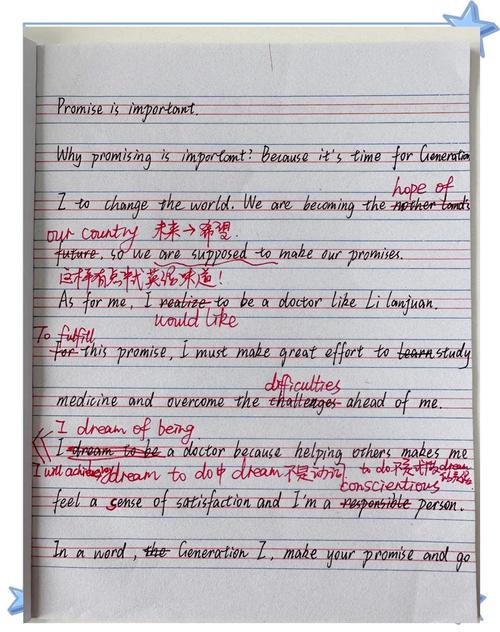 Promise is important.
Why promising is important? Because it's time for Generation
hope of
Z to change the world. We are becoming the mother land's
our country 未来→希望.
future, so we are supposed to make our promises.
这样有点中式英语味道!
As for me, I realize to be a doctor like Li lanjuan.
would like
To fulfill
For this promise, I must make great effort to learn study
difficulties
medicine and overcome the challenges ahead of me.
I dream of being
I dream to be a doctor because helping others makes me
I will achieve my dream to do中 dream不是动词 to do不是式修dream
conscientious
feel a sense of satisfaction and I'm a responsible person.
In a word, the Generation Z, make your promise and go